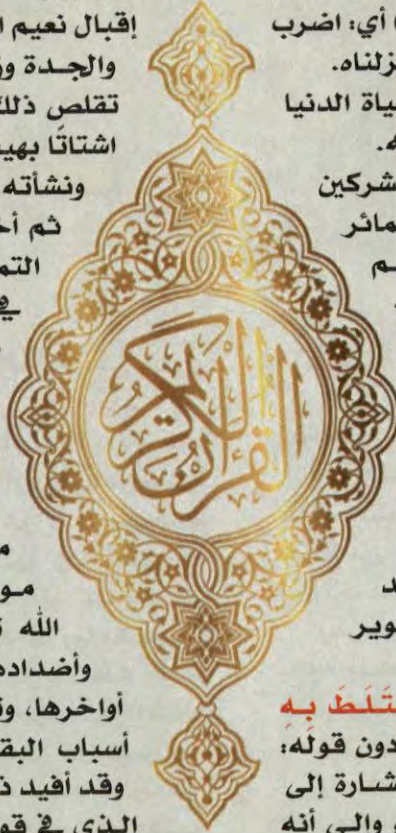 أي: اضرب
زلناه.
ياة الدنيا
ه.
شركين
مائر
م
د
وير
تَلَطَ بِهِ
دون قوله:
شارة إلى
والى أنه
القرآن الكريم
إقبال نعيم ا
والجدة وز
تقلص ذلك
اشتاتًا بهي
ونشأته
ثم أخ
التم
في
م
مو
الله ت
وأضداده
أواخرها، وت
أسباب البق
وقد أفيد ذ
الذي في قو